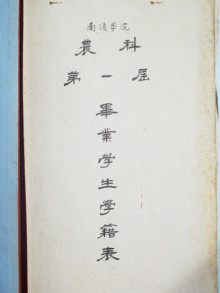 南通學院
農科
第一屆
畢業學生學籍表